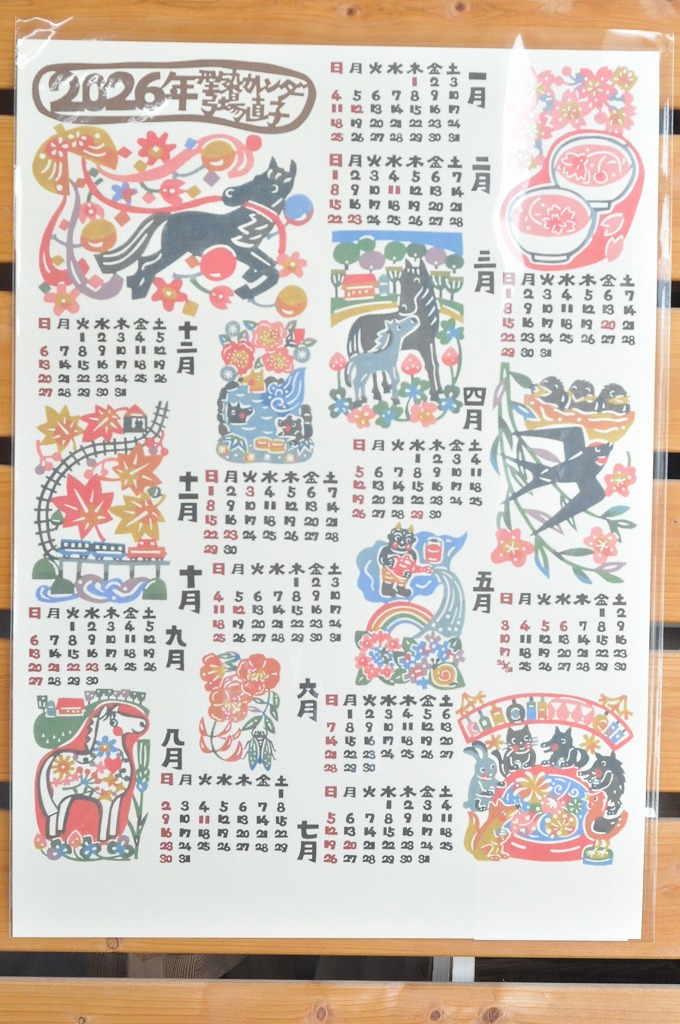 2026年 カレンダー
直子
一月
日 月 火 水 木 金 土
1 2 3
4 5 6 7 8 9 10
11 12 13 14 15 16 17
18 19 20 21 22 23 24
25 26 27 28 29 30 31
二月
日 月 火 水 木 金 土
1 2 3 4 5 6 7
8 9 10 11 12 13 14
15 16 17 18 19 20 21
22 23 24 25 26 27 28
三月
日 月 火 水 木 金 土
1 2 3 4 5 6 7
8 9 10 11 12 13 14
15 16 17 18 19 20 21
22 23 24 25 26 27 28
29 30 31
四月
日 月 火 水 木 金 土
1 2 3 4
5 6 7 8 9 10 11
12 13 14 15 16 17 18
19 20 21 22 23 24 25
26 27 28 29 30
五月
日 月 火 水 木 金 土
1 2
3 4 5 6 7 8 9
10 11 12 13 14 15 16
17 18 19 20 21 22 23
24/31 25 26 27 28 29 30
六月
日 月 火 水 木 金 土
1 2 3 4 5 6
7 8 9 10 11 12 13
14 15 16 17 18 19 20
21 22 23 24 25 26 27
28 29 30
七月
日 月 火 水 木 金 土
1 2 3 4
5 6 7 8 9 10 11
12 13 14 15 16 17 18
19 20 21 22 23 24 25
26 27 28 29 30 31
八月
日 月 火 水 木 金 土
1
2 3 4 5 6 7 8
9 10 11 12 13 14 15
16 17 18 19 20 21 22
23 24 25 26 27 28 29
30 31
九月
日 月 火 水 木 金 土
1 2 3 4 5
6 7 8 9 10 11 12
13 14 15 16 17 18 19
20 21 22 23 24 25 26
27 28 29 30
十月
日 月 火 水 木 金 土
1 2 3
4 5 6 7 8 9 10
11 12 13 14 15 16 17
18 19 20 21 22 23 24
25 26 27 28 29 30 31
十一月
日 月 火 水 木 金 土
1 2 3 4 5 6 7
8 9 10 11 12 13 14
15 16 17 18 19 20 21
22 23 24 25 26 27 28
29 30
十二月
日 月 火 水 木 金 土
1 2 3 4 5
6 7 8 9 10 11 12
13 14 15 16 17 18 19
20 21 22 23 24 25 26
27 28 29 30 31